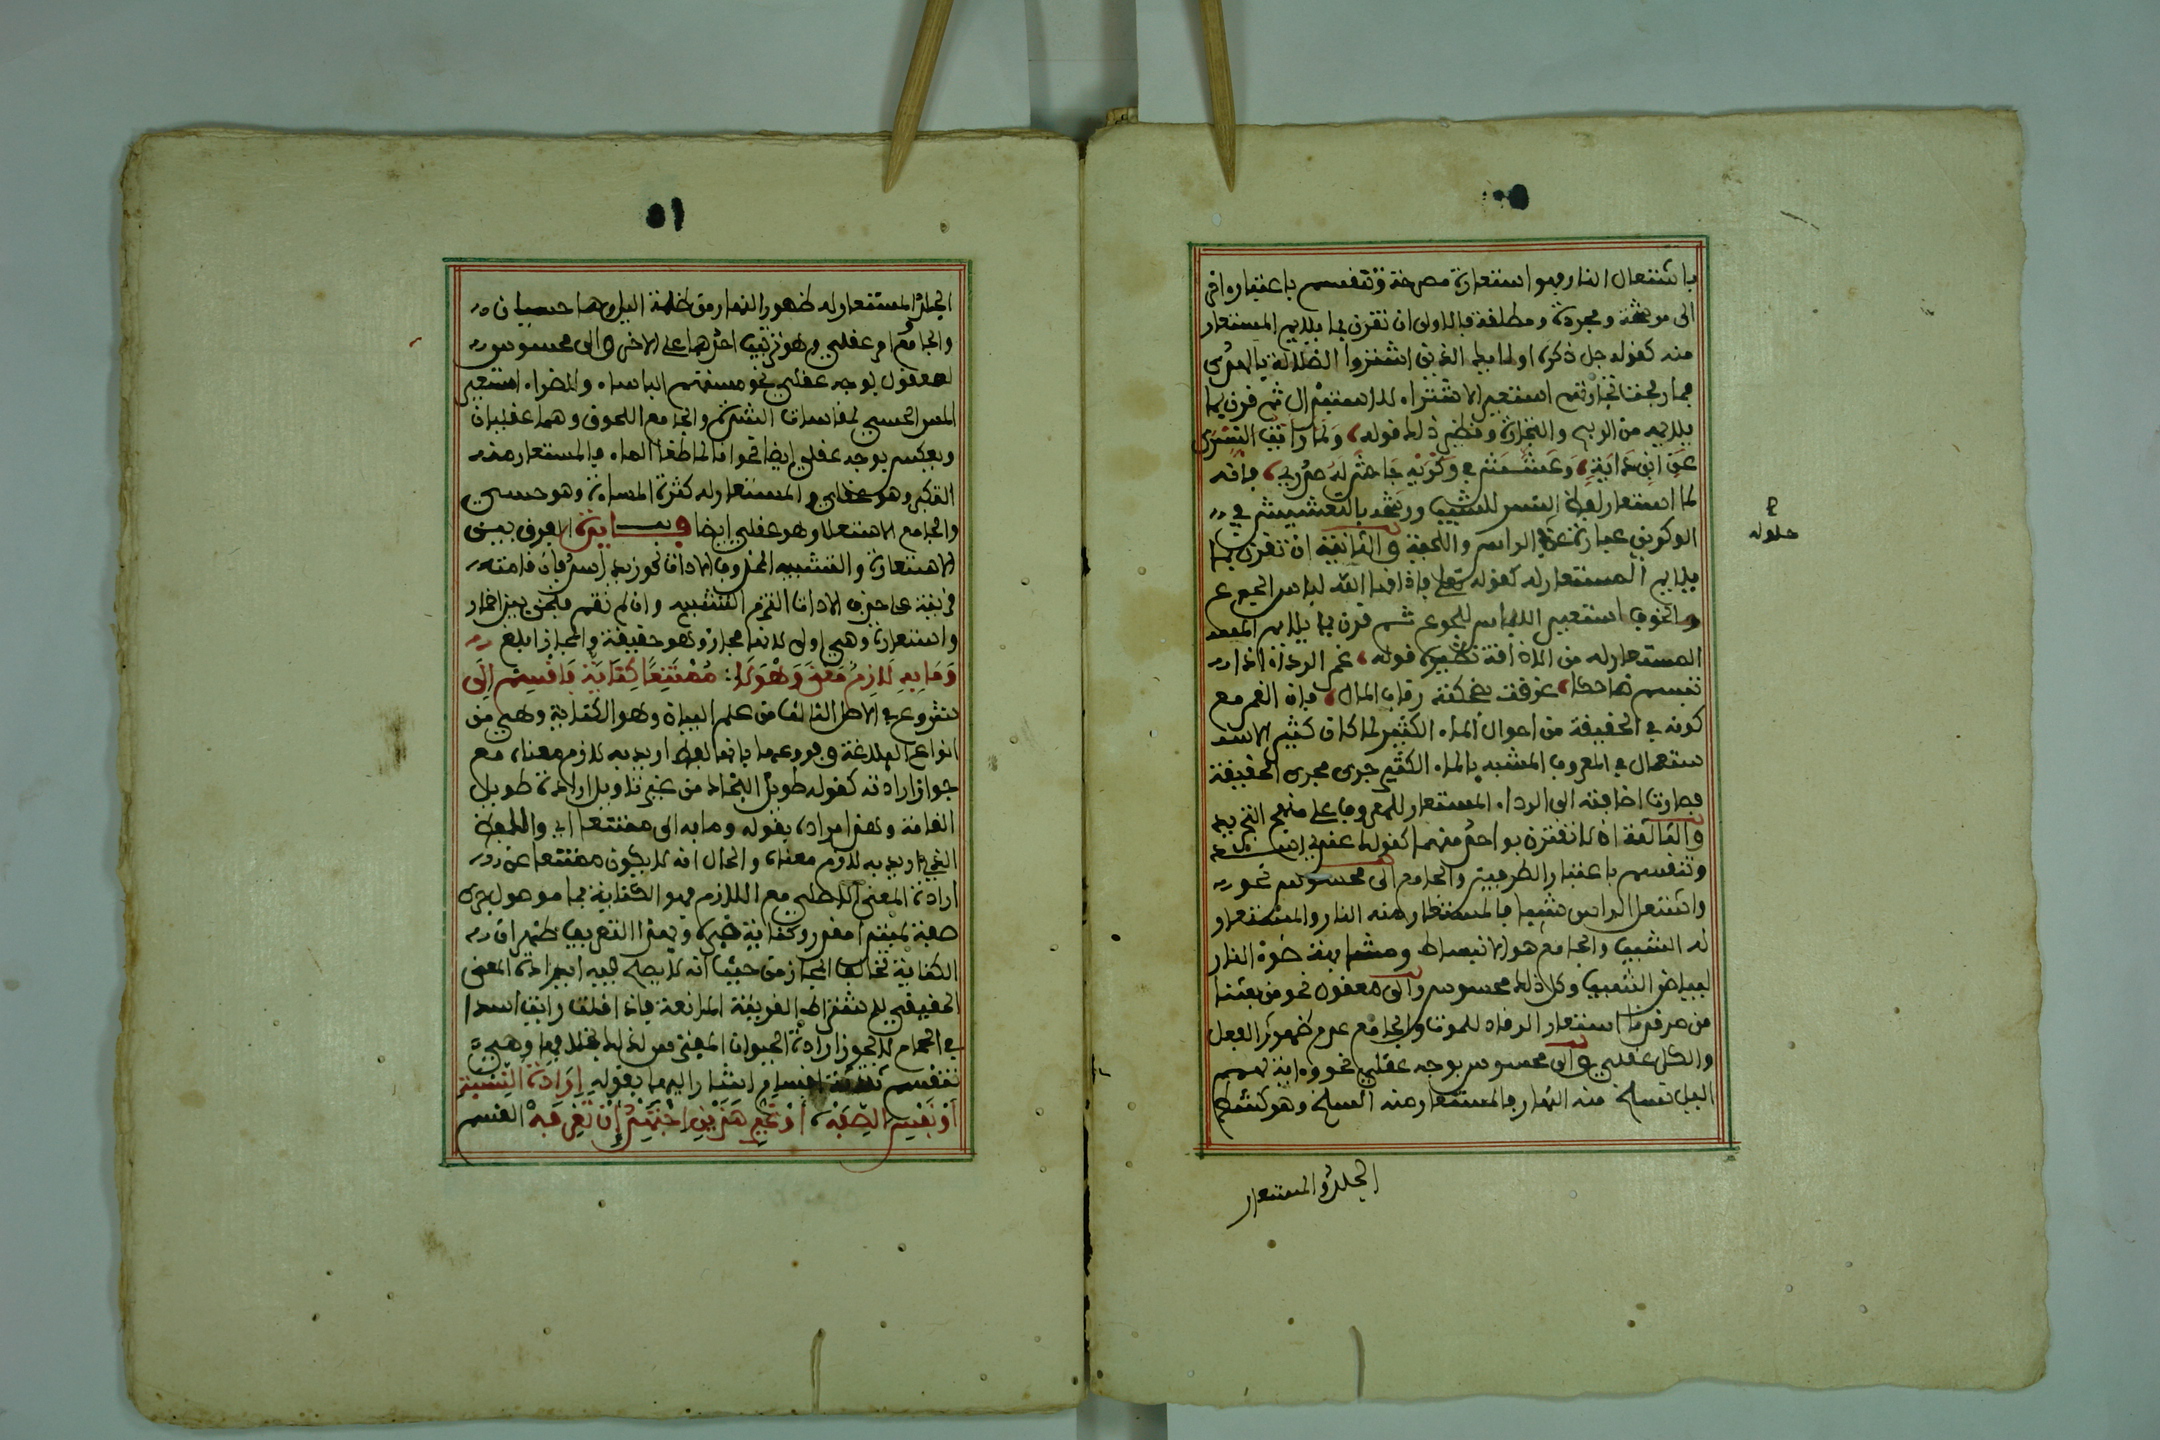 باشتعال النار فهو استعارة مصرحة وتنقسم باعتبار
الى مرشحة ومجردة ومطلقة فالاولى ان تقرن بما يلايم المستعار
منه كقوله جل ذكره اولئك الذين اشتروا الضلالة بالهدى
فما ربحت تجارتهم استعير الاشتراء للاستبدال ثم قرن بما
يلايمه من الربح والتجارة ونظير ذلك قوله، ولما رايت النسر
عز ابن داية، وعشش في وكريه جاش له صدري، فإنه
لما استعار لفظ النسر للشيب ورشحه بالتعشيش في
الوكرين عبارة عن الراس واللحية والثانية ان تقرن بما
يلايم المستعار له كقوله تعلى فاذاقها الله لباس الجوع
والخوف استعير اللباس للجوع ثم قرن بما يلايم
المستعار له من الاذاقة نظيره قوله، غمر الرداء اذا
تبسم ضاحكا، غلقت بضحكته رقاب المال، فإن الغمر مع
كونه في الحقيقة من احوال الماء الكثير لما كان كثير الاسـ
ستعمال في المعروف المشبه بالماء الكثير جرى مجرى الحقيقة
فصارت اضافته الى الرداء المستعار للمعروف على منهج التجريد
والثالثة ان لا تقترن بواحد منهما كقولك عندي اسد
وتنقسم باعتبار الطرفين والجامع الى محسوس نحو
واشتعل الراس شيبا فالمستعار منه النار والمستعار
له الشيب والجامع هو الانبساط ومشابهة ضوء النار
لبياض الشيب وكل ذلك محسوس والى معقول نحو من بعثنا
من مرقدنا استعار الرقاد للموت والجامع عدم ظهور الفعل
والكل عقلي والى محسوس بوجه عقلي نحو وءاية لهم
اليل نسلخ منه النهار فالمستعار منه السلخ وهو كشط
الجلد والمستعار
حلوله
٥١
الجلد والمستعار له ظهور النهار من ظلمة اليل وهما حسيان
والجامع امر عقلي وهو ترتيب احدهما على الاخر والى محسوس
لمعقول بوجه عقلي نحو مستهم الباساء والضراء استعير
المس الحسي لمقاسات الشدة والجامع اللحوق وهما عقليان
وبعكس بوجه عقلي ايضا نحو انا لما طغا الماء فالمستعار منه
التكبر وهو عقلي والمستعار له كثرة الماء وهو حسي
والجامع الاستعلا وهو عقلي ايضا فــايدة الفرق بين
الاستعارة والتشبيه المحذوف الاداة نحو زيد اسد فان قامت
قرينة على حذف الاداة التزم التشبيه وان لم تقم فنحن بين اضمار
واستعارة وهي اولى لانها مجاز وهو حقيقة والمجاز ابلغ
وما به لازم معنى وهو لا: ممتنعا كناية فاقسم إلى
شروع في الاصل الثالث من علم البيان وهو الكناية وهي من
انواع البلاغة وفروعها بانها لفظ اريد به لازم معناه مع
جواز ارادته كقوله طويل النجاد من غير تاويل ارادة طويل
القامة وهذا مراده بقوله وما به الى ممتنعا اي واللفظ
الذي اريد به لازم معناه والحال انه لا يكون ممتنعا عن
ارادة المعنى الاصلي مع اللازم فهو الكناية
صفة لمبتدا مقدر وكناية خبره وبهذا التعريف ظهر ان
الكناية تخالف المجاز من حيث انه لا يصلح فيه ايراد المعنى
الحقيقي للاشتراط القرينة المانعة فاذا قلت رايت اسدا
في الحمام لا يجوز ارادة الحيوان المفترس لذلك بخلافها وهي
تنقسم ثلاثة اقسام اشار اليها بقوله إرادة النسبة
أو نفس الصفة، أو غير هذين اجتهد أن تعرفه القسم